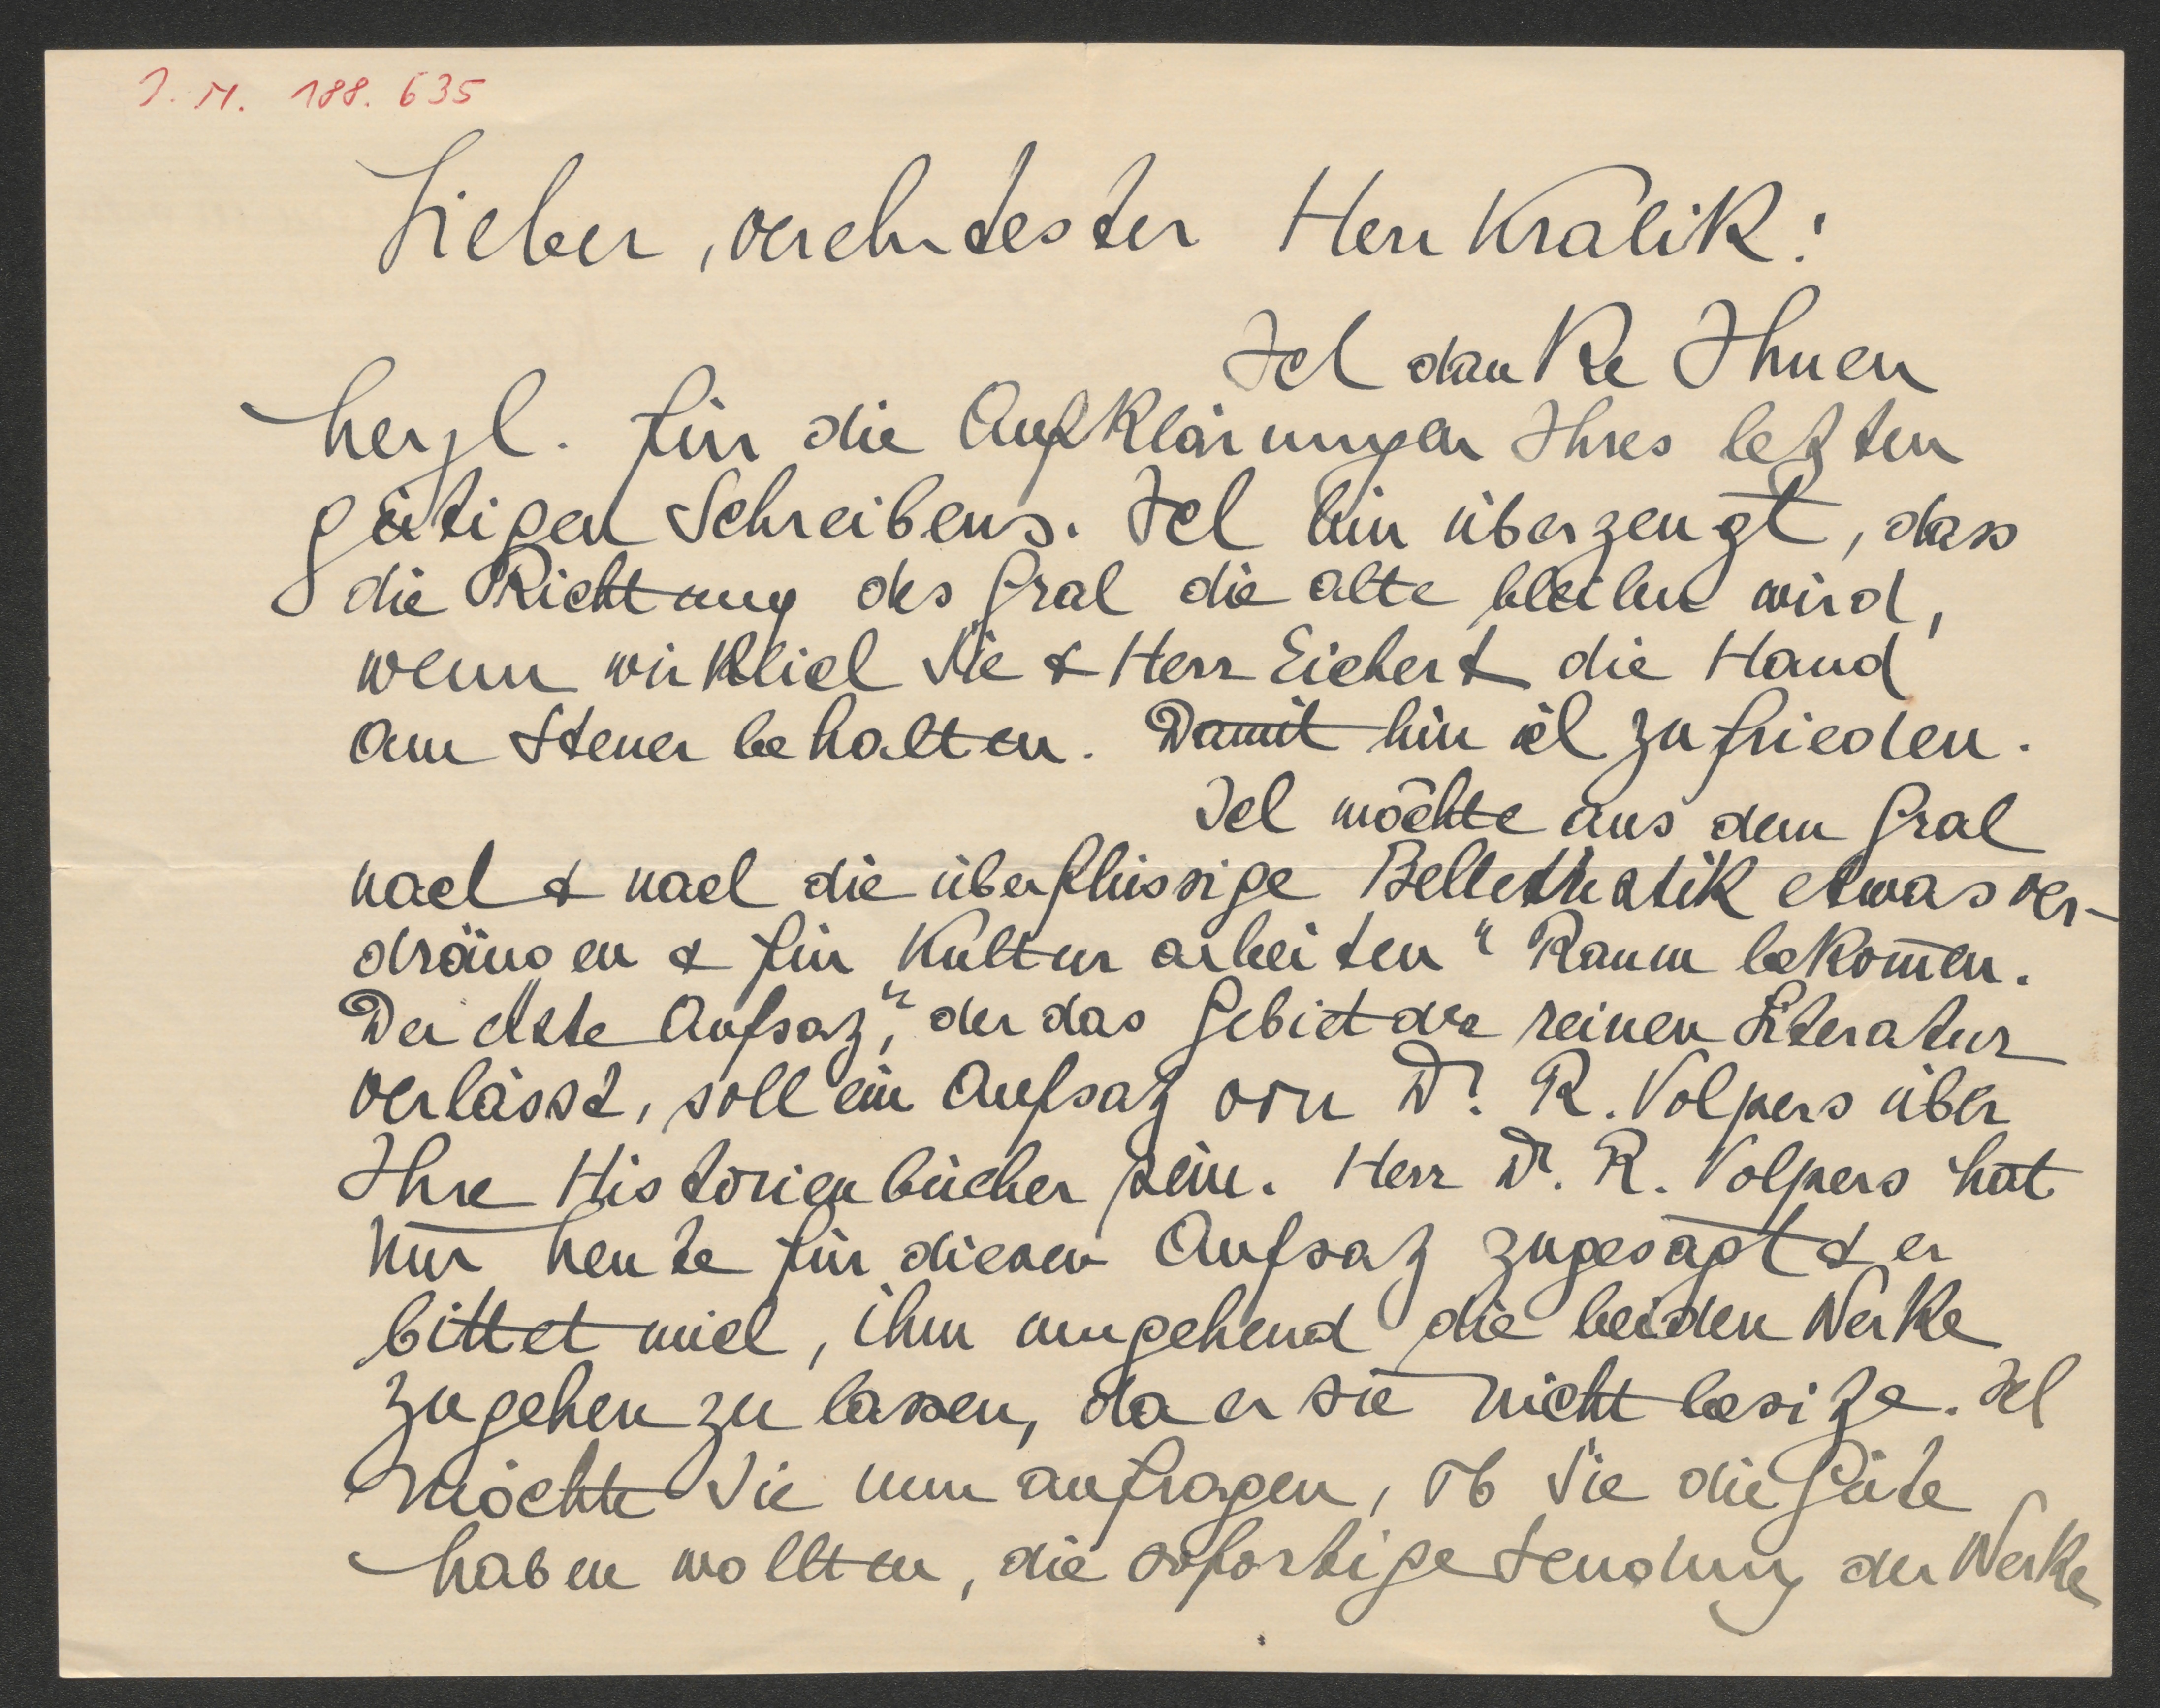 J. N. 188.635
Lieber, verehrtester Herr Kralik!
Ich danke Ihnen
herzl. für die Aufklärungen Ihres letzten
gütigen Schreibens. Ich bin überzeugt, dass
die Richtung des Gral die alte bleiben wird,
wenn wirklich Sie & Herr Eichert die Hand
am Steuer behalten. Damit bin ich zufrieden.
Ich möchte aus dem Gral
nach & nach die überflüssige Belletristik etwas ver-
drängen & für „Kulturarbeiten“ Raum bekom̅en.
Der erste „Aufsaz“, der das Gebiet der reinen Literatur
verlässt, soll ein Aufsaz von Dr. R. Volpers über
Ihre Historienbücher sein. Herr Dr. R. Volpers hat
nur heute für diesen Aufsaz zugesagt & er
bittet mich, ihm umgehend die beiden Werke
zugehen zu lassen, da er sie nicht besize. Ich
möchte Sie nun anfragen, ob Sie die Güte
haben wollten, die sofortige Sendung der Werke